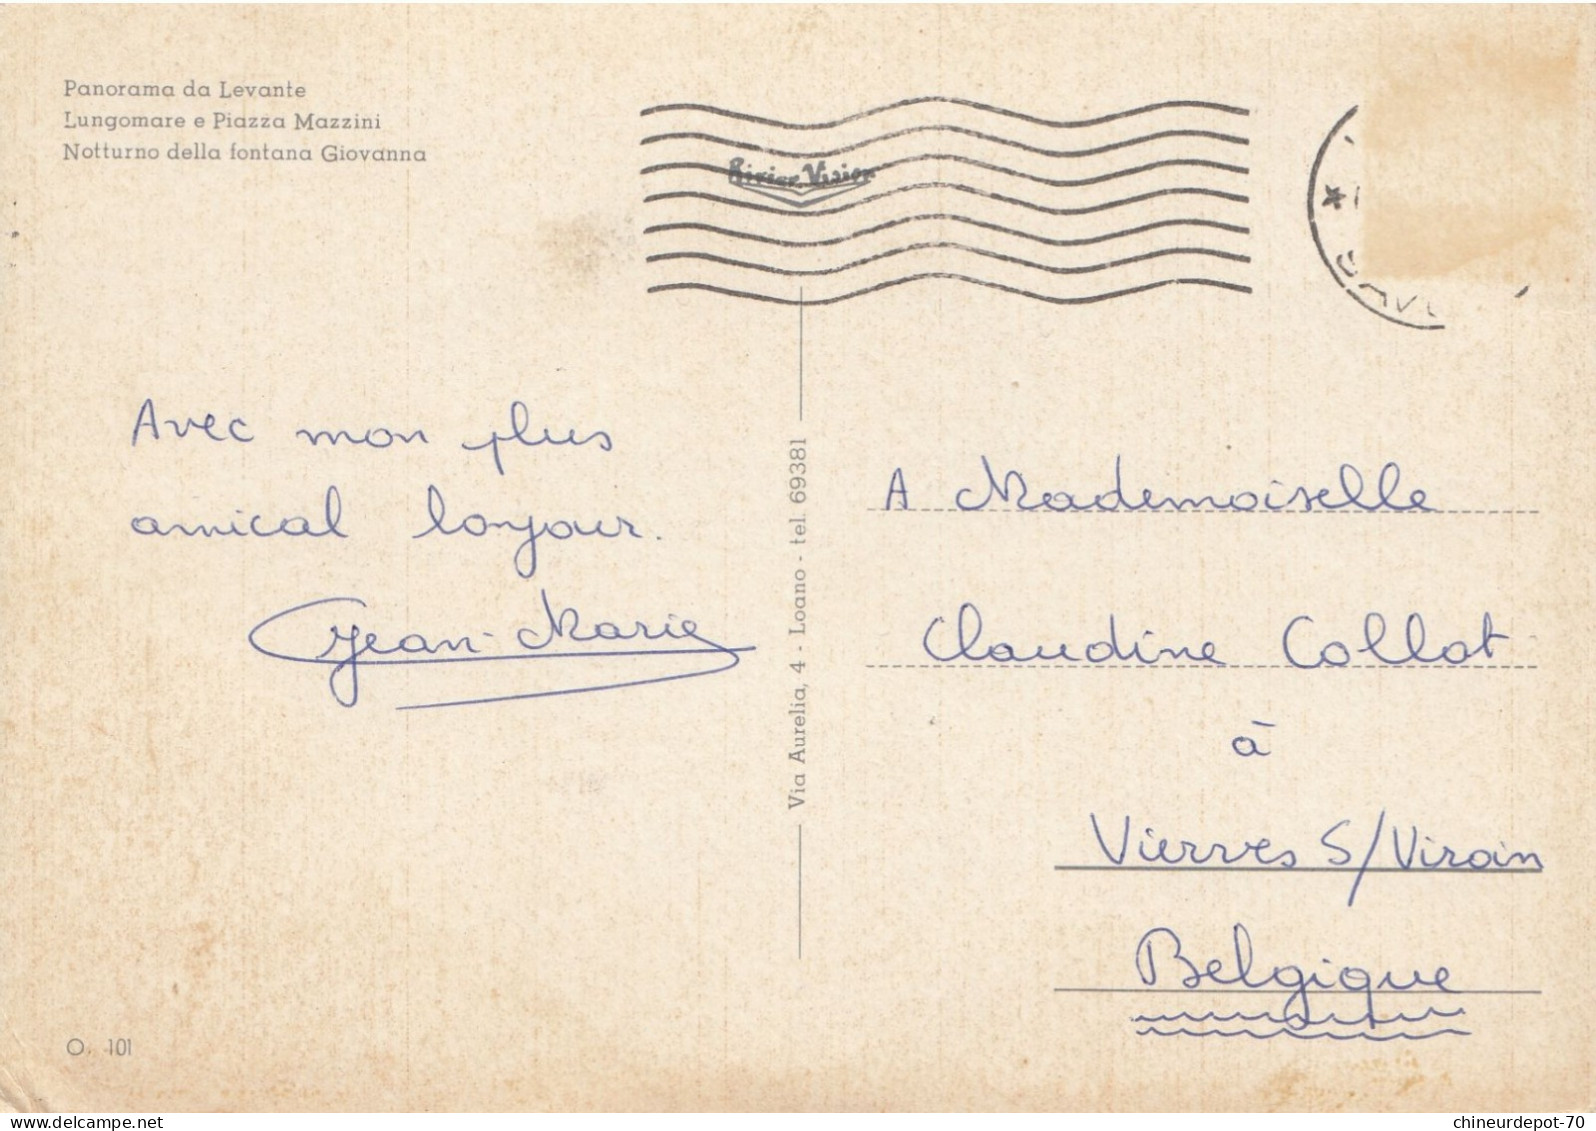 Panorama da Levante
Lungomare e Piazza Mazzini
Notturno della fontana Giovanna
Rivier Visior
SAV
Avec mon plus
amical bonjour.
Jean-Marie
Via Aurelia, 4 - Loano - tel. 69381
A Mademoiselle
Claudine Collot
à
Vierves S/Viroin
Belgique
O. 101
www.delcampe.net
chineurdepot-70